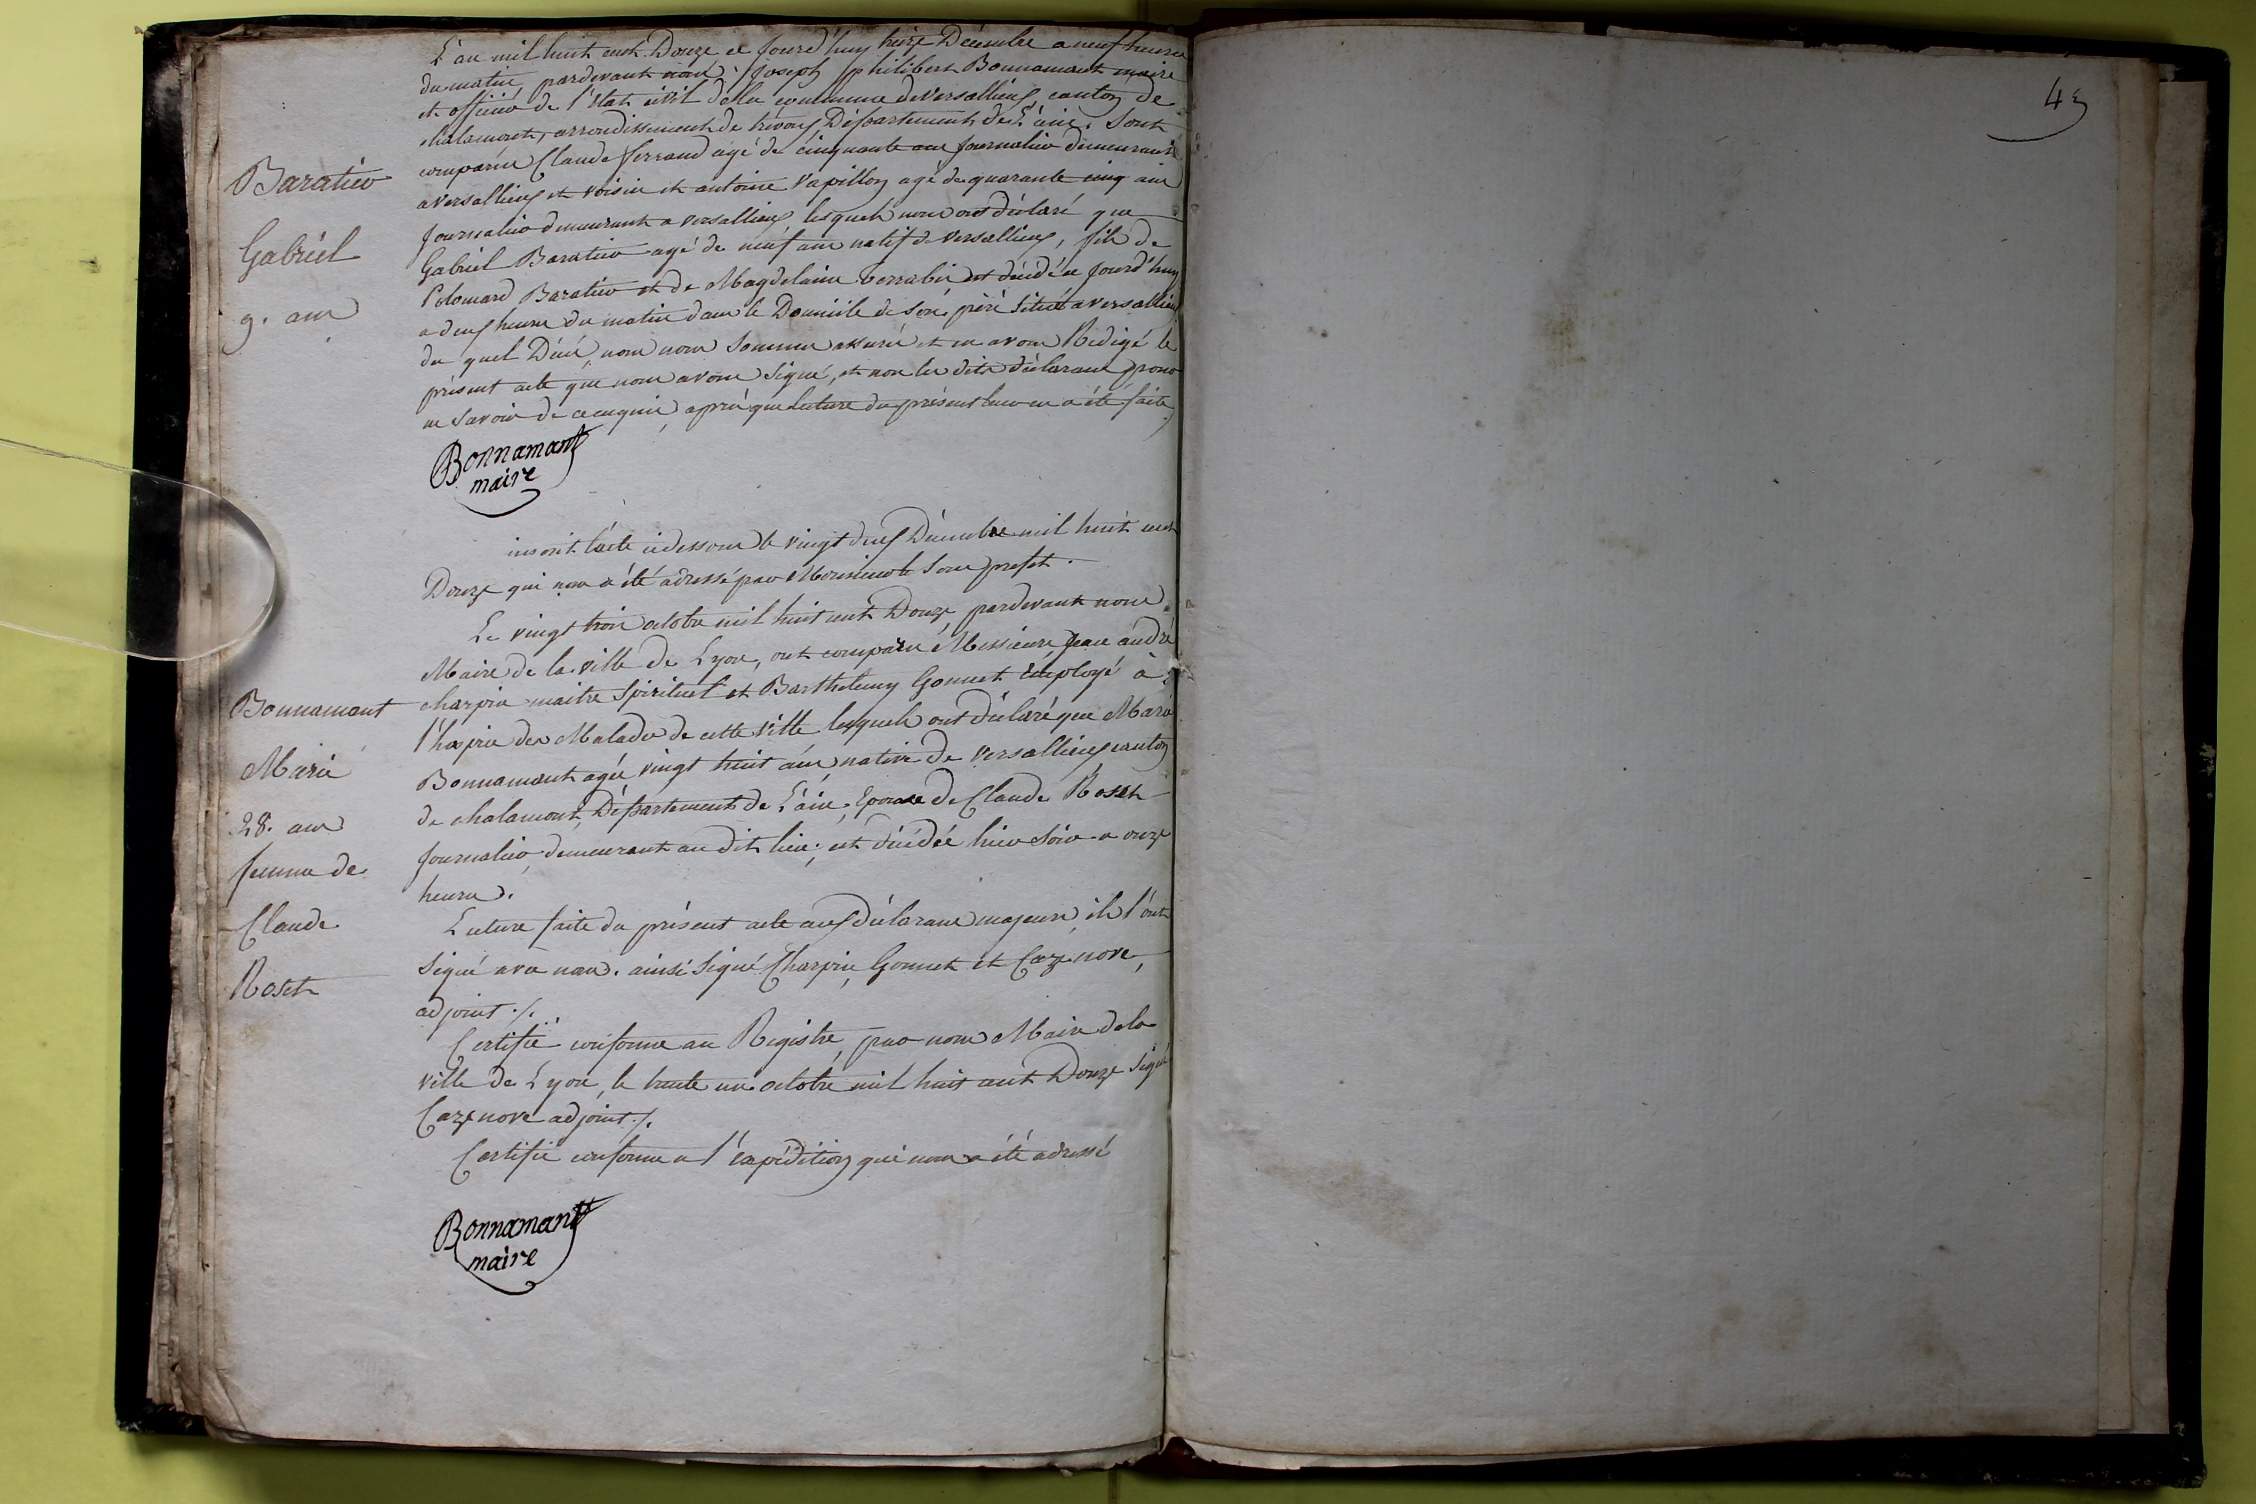 L'an mil huit cent Douze ce jourd'huy treize Décembre a neuf heures
du matin, pardevant nous Joseph philibert Bonnamant maire
et officier de l'état civil de la commune de versallieux canton de
chalamont, arrondissement de trévoux Département de L'ain. Sont
comparus Claude ferrand agé de cinquante ans journalier demeurant
a versallieux et voisin et antoine Papillon agé de quarante cinq ans
journalier demeurant a versallieux lesquels nous ont déclaré que
Gabriel Baratier agé de neuf ans natif de versallieux, fils de
Baratier et de Magdelaine est décédé ce jourd'huy
a deux heures du matin dans le Domicile de son père situé a versallieux
du quel Décès, nous nous sommes assurés et en avons Rédigé le
présent acte que nous avons signé, et non les dits déclarans pour
ne savoir de ce enquis, après que lecture du présent leur en a été faite
Baratier
Gabriel
9. ans
Bonnamant
maire
inscrit l'acte cidessous le vingt deux Décembre mil huit cent
Douze qui nous a été adressé par Monsieur le Sous préfet.
Le vingt trois octobre mil huit cent Douze, pardevant nous
Maire de la ville de Lyon, ont comparu Messieurs Jean andré
charpin maitre spirituel et Barthelemy Gonnet Employé à
l'hospice des Malades de cette ville lesquels ont déclaré que Marie
Bonnamant agée vingt huit ans, native de versallieux canton
de chalamont, Département de L'ain, Epouse de Claude Roset
journalier, demeurant au dit lieu; est décédée hier soir a onze
heures.
Lecture faite du présent acte aux déclarans majeurs, ils l'ont
signé avec nous. ainsi signé Charpin, Gonnet et Cazenove,
adjoint ./.
Certifié conforme au Registre, par nous Maire de la
ville de Lyon, le trente un octobre mil huit cent Douze signé
Cazenove adjoint ./.
Certifié conforme a l'expédition qui nous a été adressé
Bonnamant
Marie
28. ans
femme de
Claude
Roset
Bonnamant
maire
43